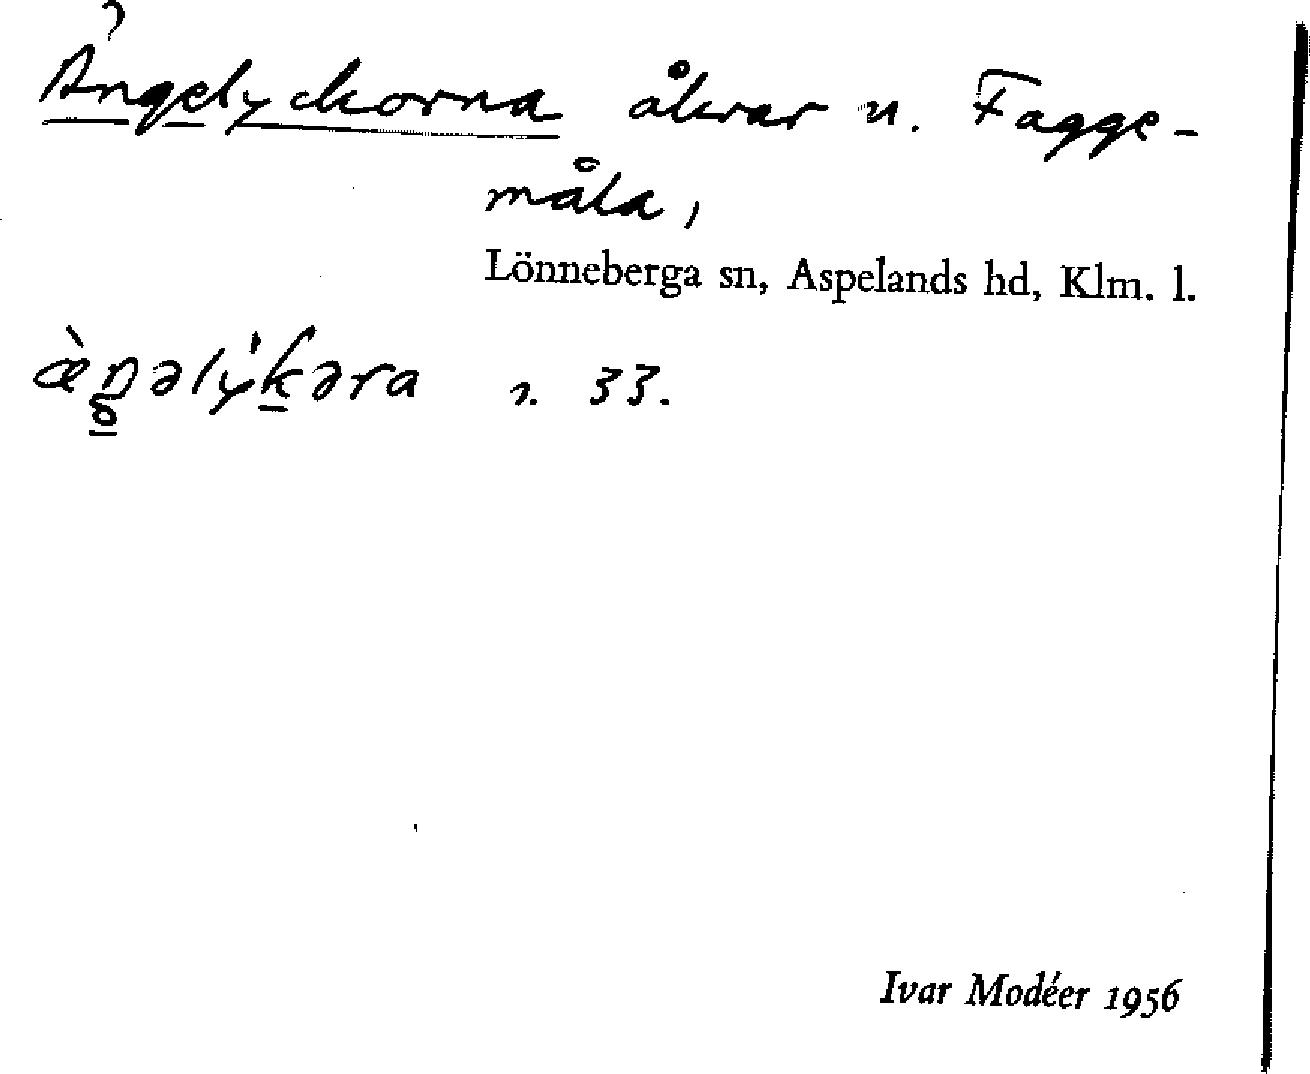 Ängelyckorna åkrar u. Fagge-
måla,
Lönneberga sn, Aspelands hd, Klm. l.
æ̀ŋəlýkəra 1. 33.
Ivar Modéer 1956